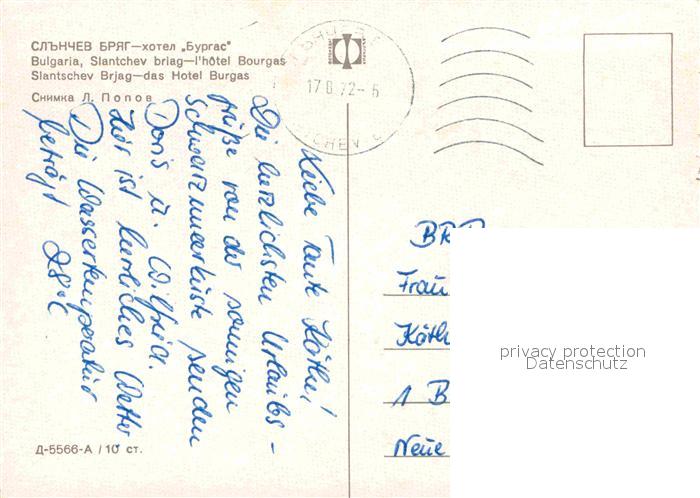 СЛЪНЧЕВ БРЯГ—хотел „Бургас"
Bulgaria, Slantchev briag—l'hôtel Bourgas
Slantschev Brjag—das Hotel Burgas
Снимка Л. Попов
17.8.72-6
Liebe Tante Käthe!
Die herzlichsten Urlaubs-
grüße von der sonnigen
Schwarzmeerküste senden
Doris u. Wilfried.
Hier ist herrliches Wetter.
Die Wassertemperatur
beträgt 28°C
BRD
Frau
Käth
1 B
Neue
privacy protection
Datenschutz
Д-5566-А / 10 ст.